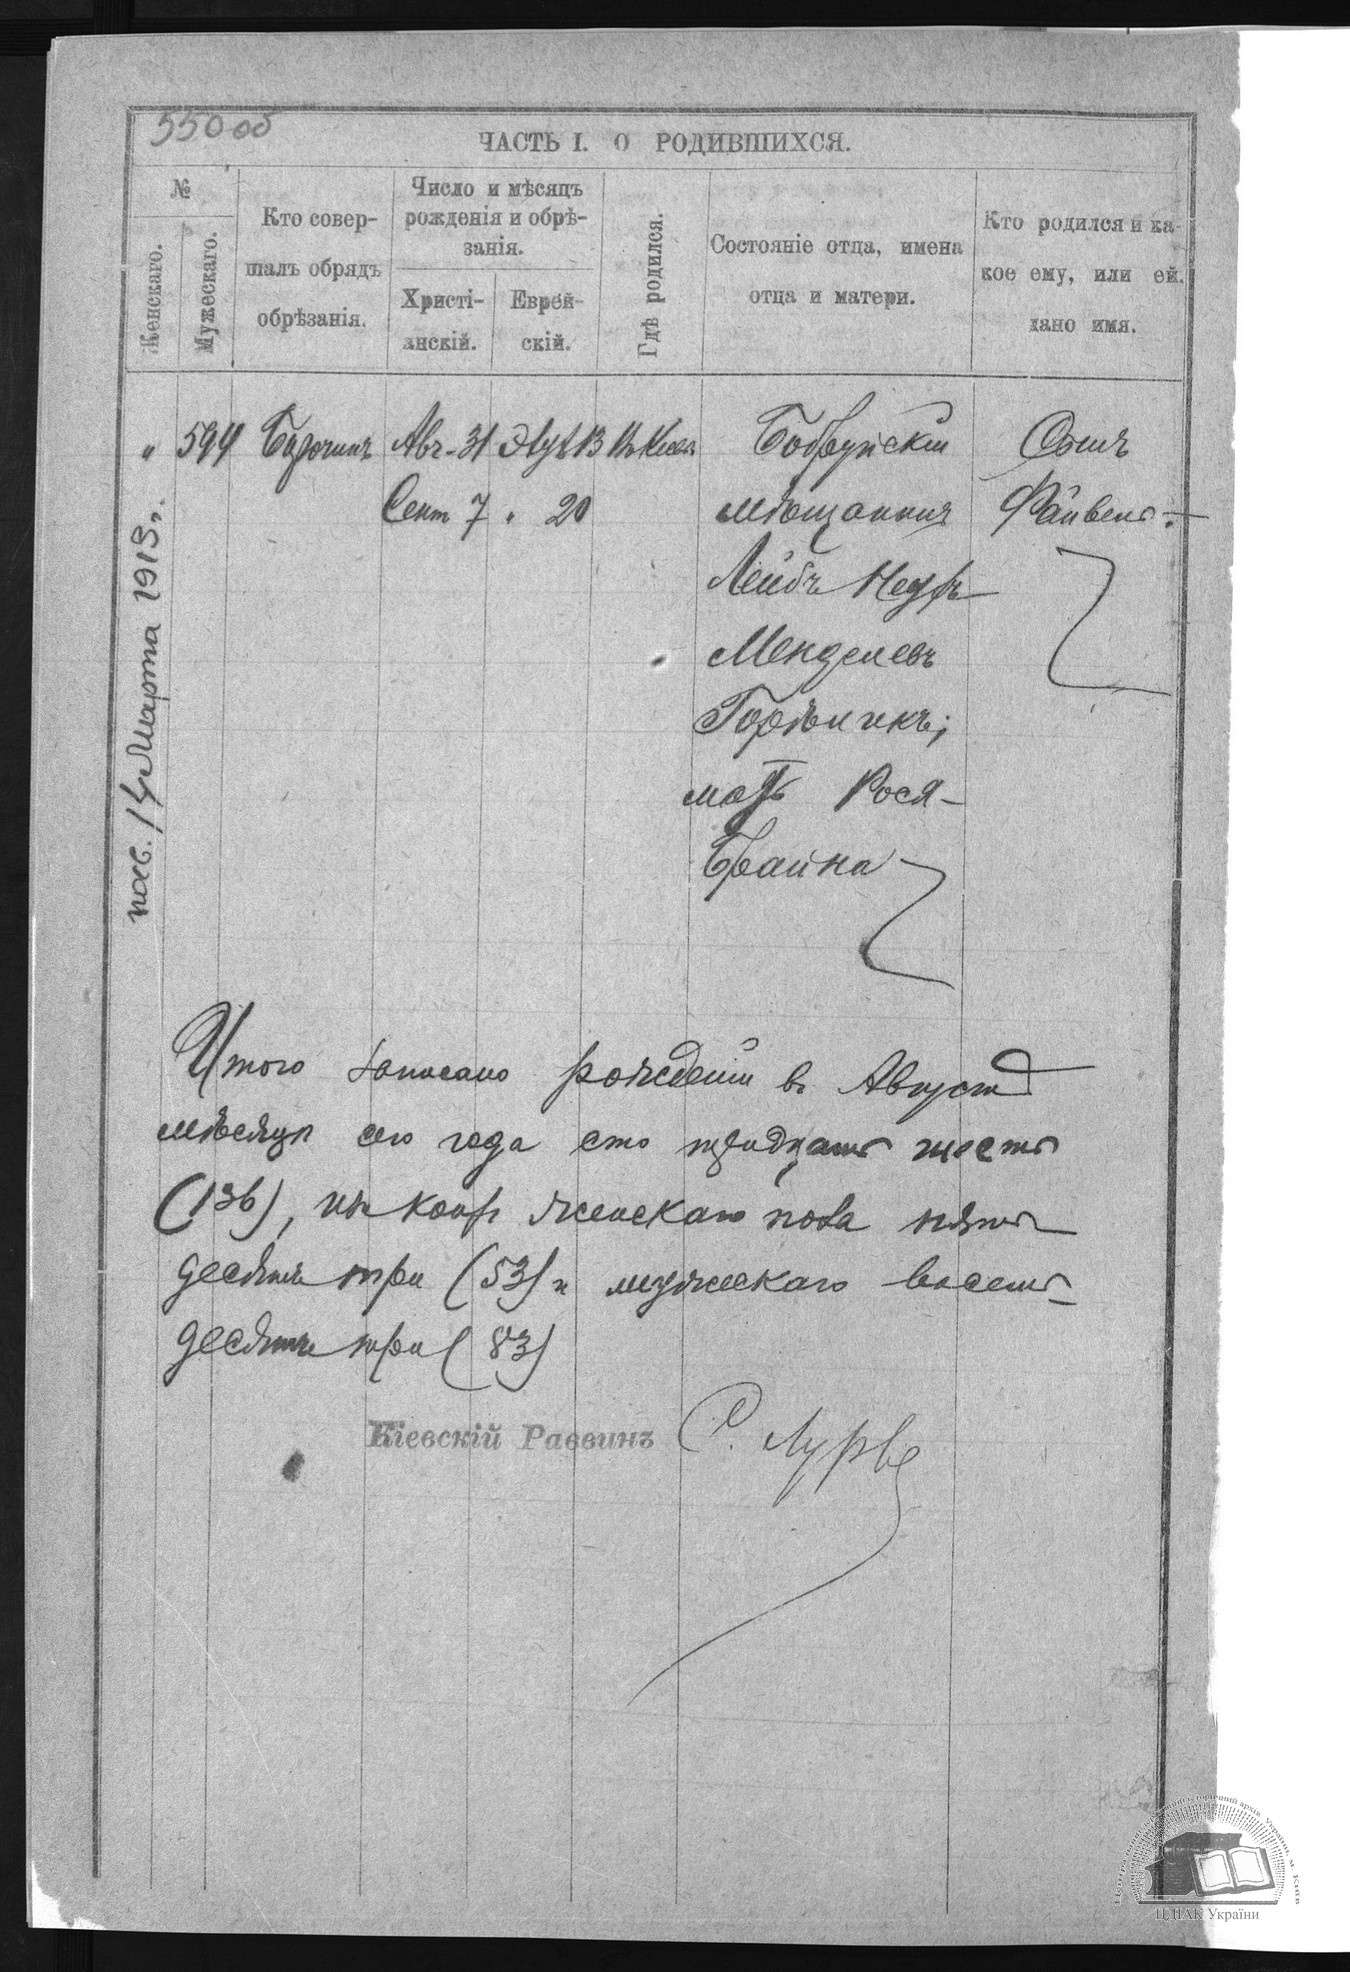 550 об
ЧАСТЬ I. О РОДИВШИХСЯ.
№
Женскаго.
Мужескаго.
Кто совер-
шалъ обрядъ
обрѣзанія.
Число и мѣсяцъ
рожденія и обрѣ-
занія.
Христі-
анскій.
Еврей-
скій.
Гдѣ родился.
Состояніе отца, имена
отца и матери.
Кто родился и ка-
кое ему, или ей.
дано имя.
" 594 Авг. 31 13 Бобруйскій Сынъ
Сент 7 " 20 мѣщанинъ
Лейбъ
Менделевъ
мать Рося-
Брайна
14 Марта 1913 г.
Итого записано рожденій въ Августѣ
мѣсяцѣ сего года сто тридцать шесть
(136), изъ коихъ женскаго пола пять
десятъ три (53) и мужескаго восемь-
десятъ три (83)
Кіевскій Раввинъ С. Лурье
ЦДІАК України